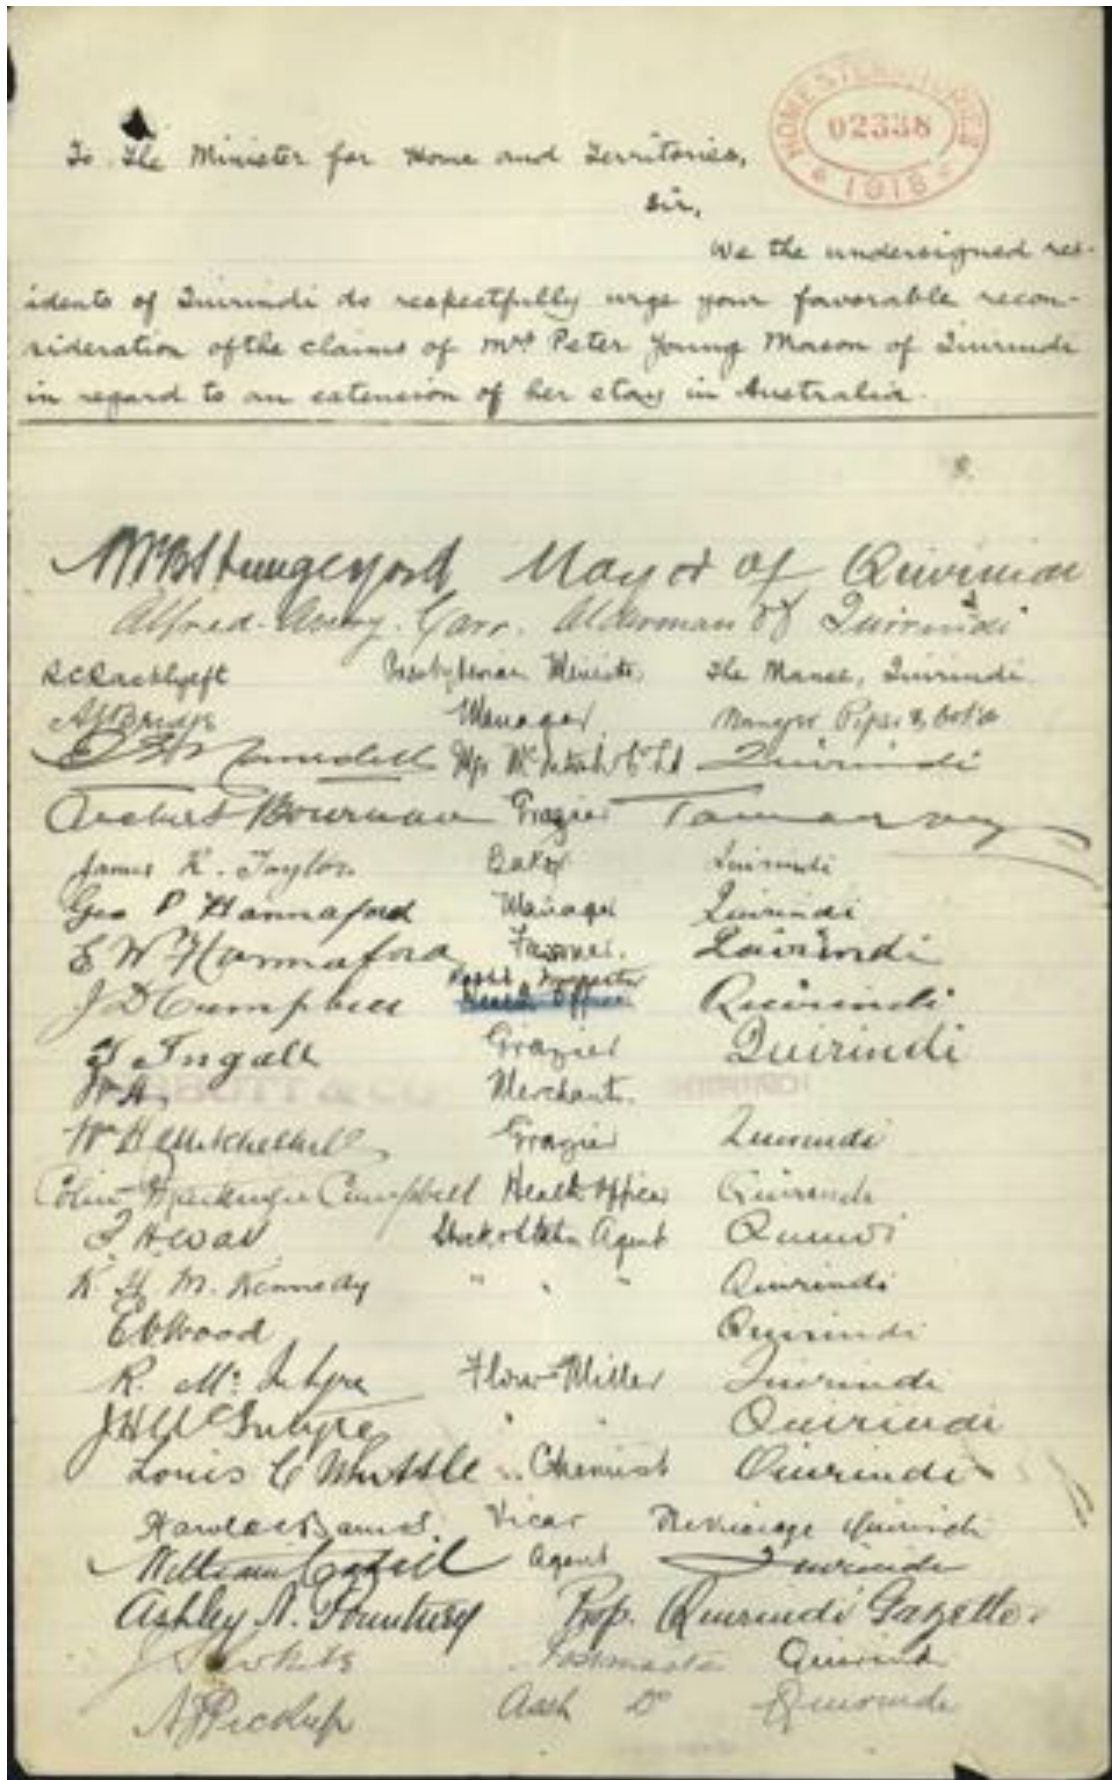 HOME & TERRITORIES
02338
1918
To The Minister for Home and Territories,
Sir,
We the undersigned res-
idents of Quirindi do respectfully urge your favorable recon-
sideration of the claims of Mrs Peter Young Mason of Quirindi
in regard to an extension of her stay in Australia.
Hungerford Mayor of Quirindi
Alfred Carr. Alderman of Quirindi
Presbyterian Minister, The Manse, Quirindi
Manager
Quirindi
Bowman Grazier
James K. Taylor Baker Quirindi
Geo P Hannaford Manager Quirindi
E W Hannaford Farmer. Quirindi
J D Campbell Inspector Quirindi
T Ingall Grazier Quirindi
Merchant.
Grazier Quirindi
Colin Mackenzie Campbell Health Officer Quirindi
Agent
K. M. Kennedy " " " Quirindi
E Wood Quirindi
R. McIntyre Flour Miller Quirindi
J H McIntyre " " Quirindi
Louis C Whittle Chemist Quirindi
Vicar Quirindi
William Agent Quirindi
Ashley N. Prop. Quirindi Gazette.
Postmaster Quirindi
Pickup Asst Do Quirindi